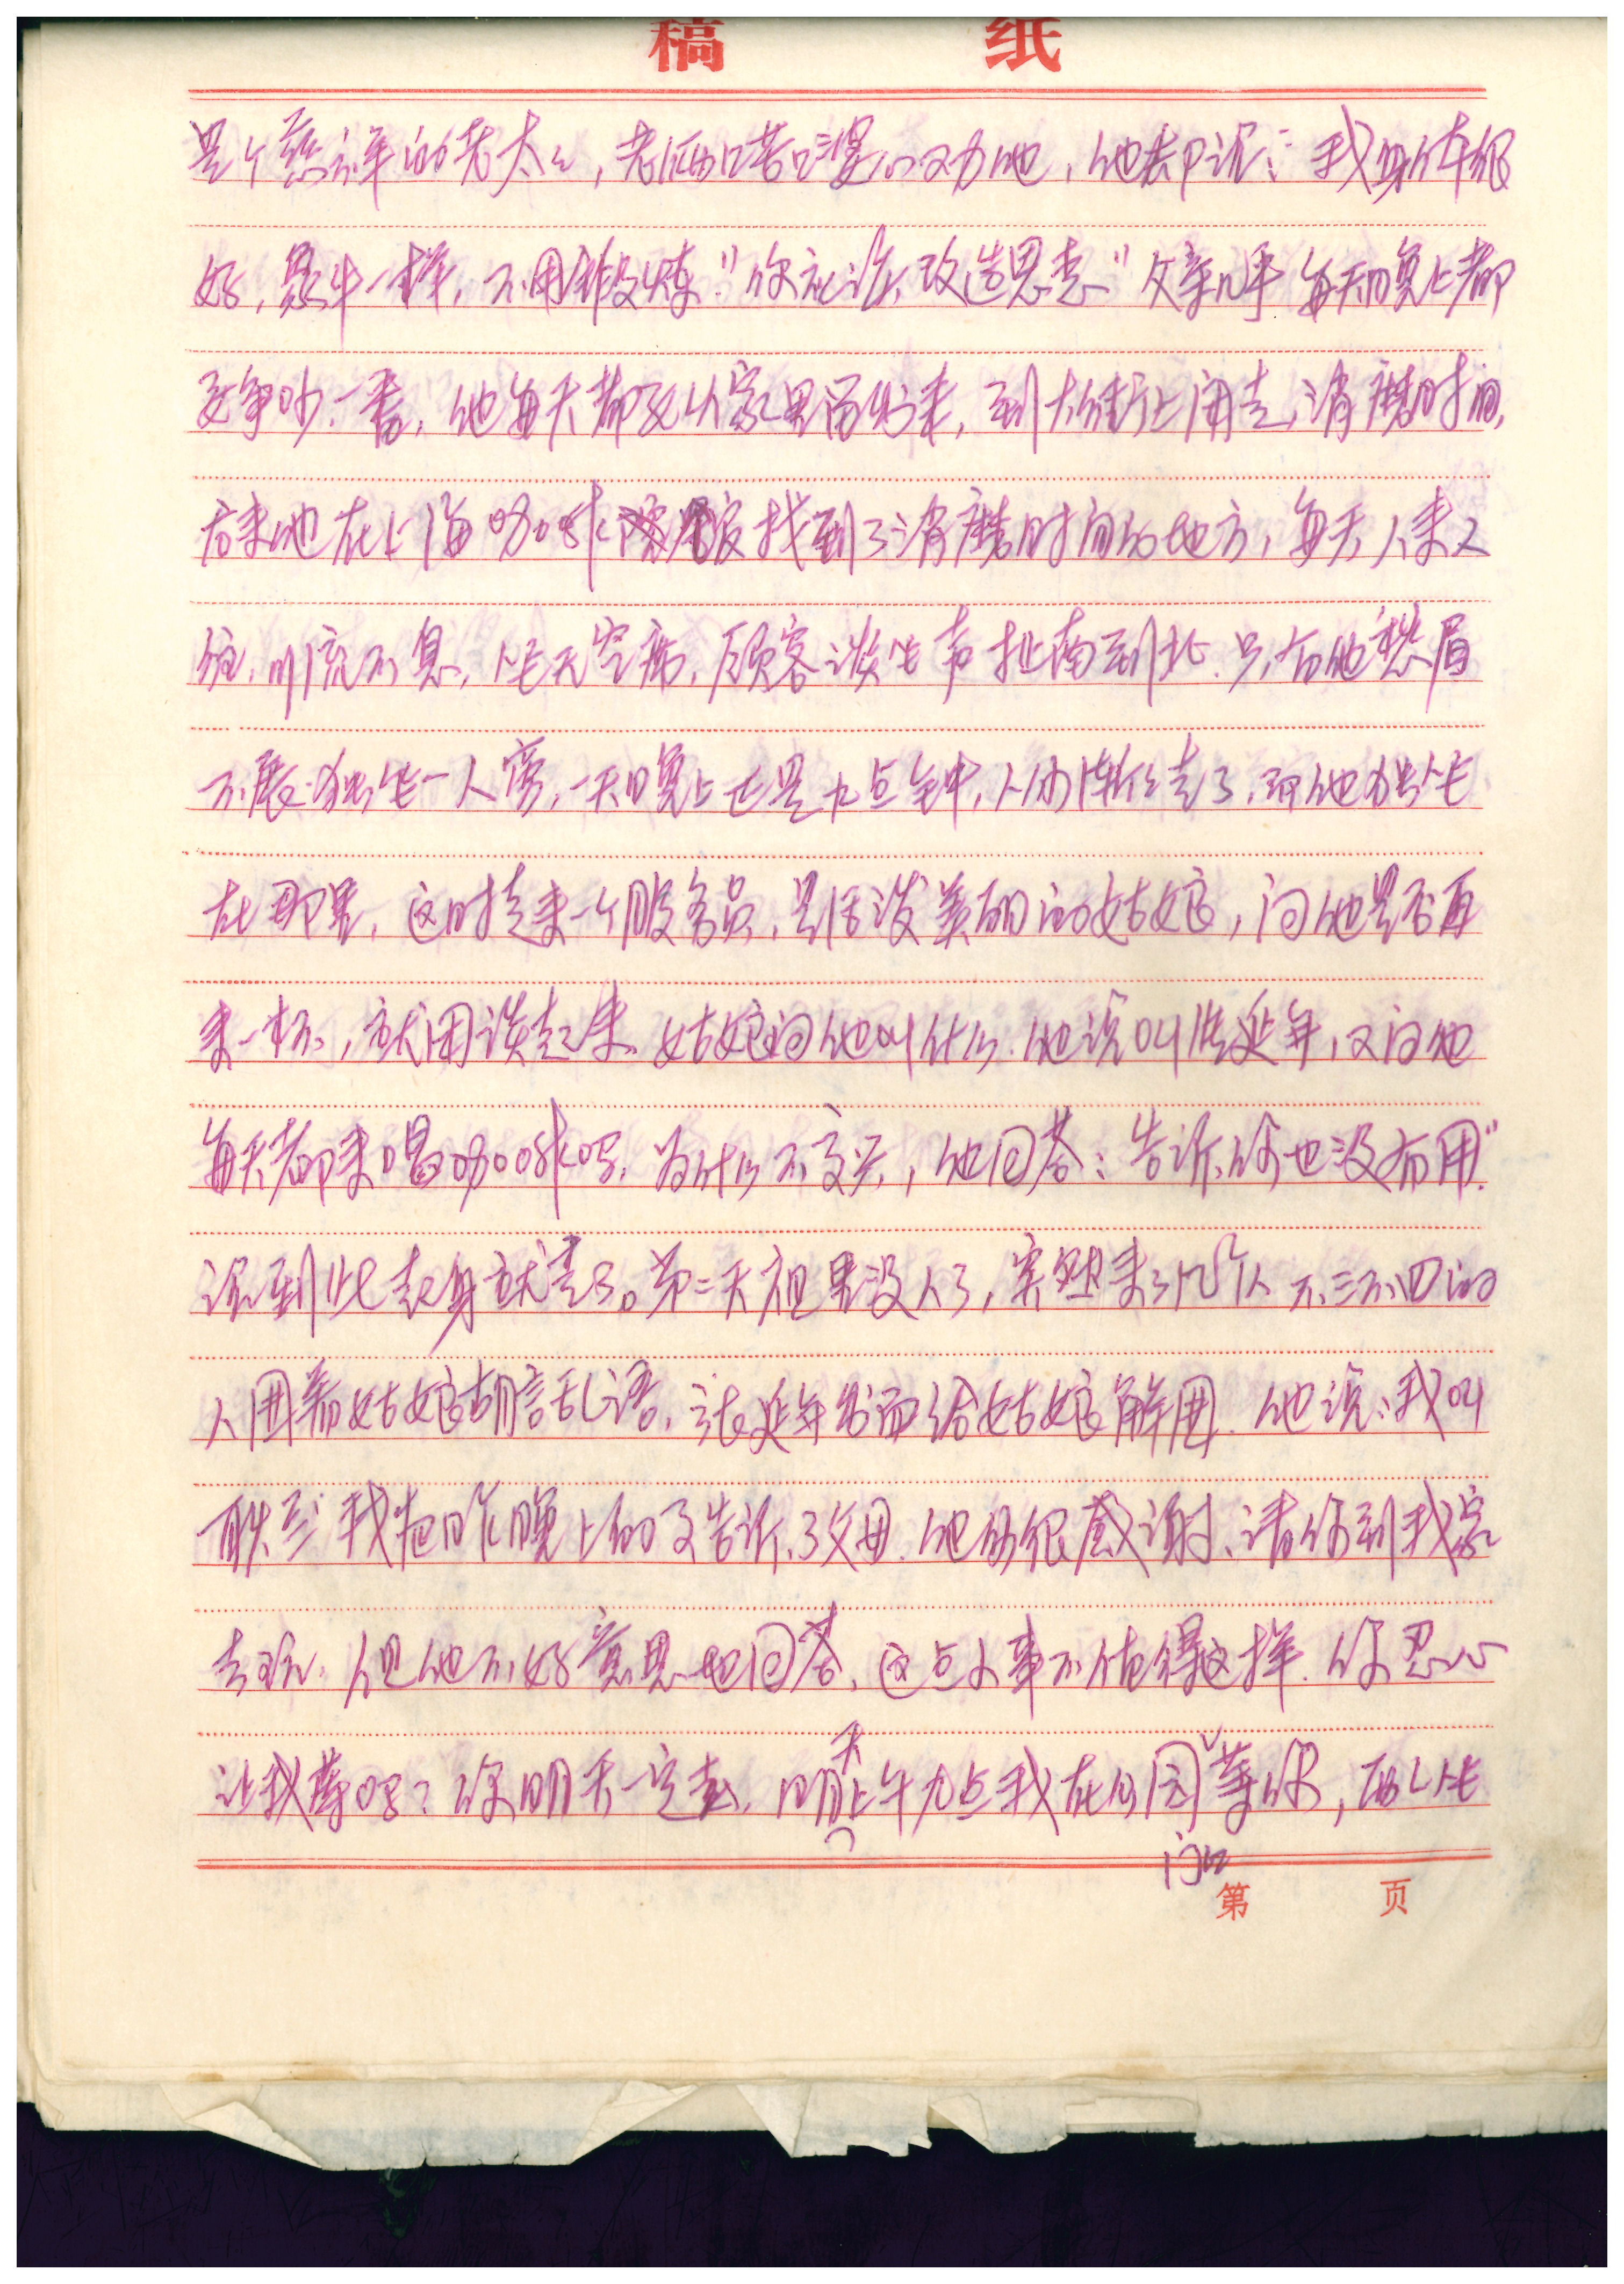 稿 纸
是个慈祥的老太太，老俩口苦口婆心又劝他，他却说：“我身体很
好，象牛一样，不用锻炼。”“你就许改造思想”父亲几乎每天晚上都
要争吵一番，他每天都要从家里溜出来，到大街上闲走，消磨时间，
后来他在上海咖啡找到了消磨时间的地方，每天人来又
往，川流不息，坐无空席，顾客谈笑声扯南到北，只有他愁眉
不展，独坐一人旁，一天晚上也是九点钟，人们渐渐走了，那他独坐
在那里，这时走来一个服务员，是活泼美丽的姑娘，问他是否再
来一杯，就闲谈起来，姑娘问他叫什么，他说叫张延年，又问他
每天都来喝咖啡吗，为什么不高兴，他回答：告诉你也没有用”
说到此起身就走了。第二天夜里没人了，突然来了几个人不三不四的
人围着姑娘胡言乱语，张延年出面给姑娘解围，他说：我叫
我把昨晚上的事告诉了父母，他们很感谢，请你到我家
去玩，但他不好意思地回答，这点小事不值得这样，你忍心
让我等吗？你明天一定去，明天上午九点我在公园门口等你，
第 页